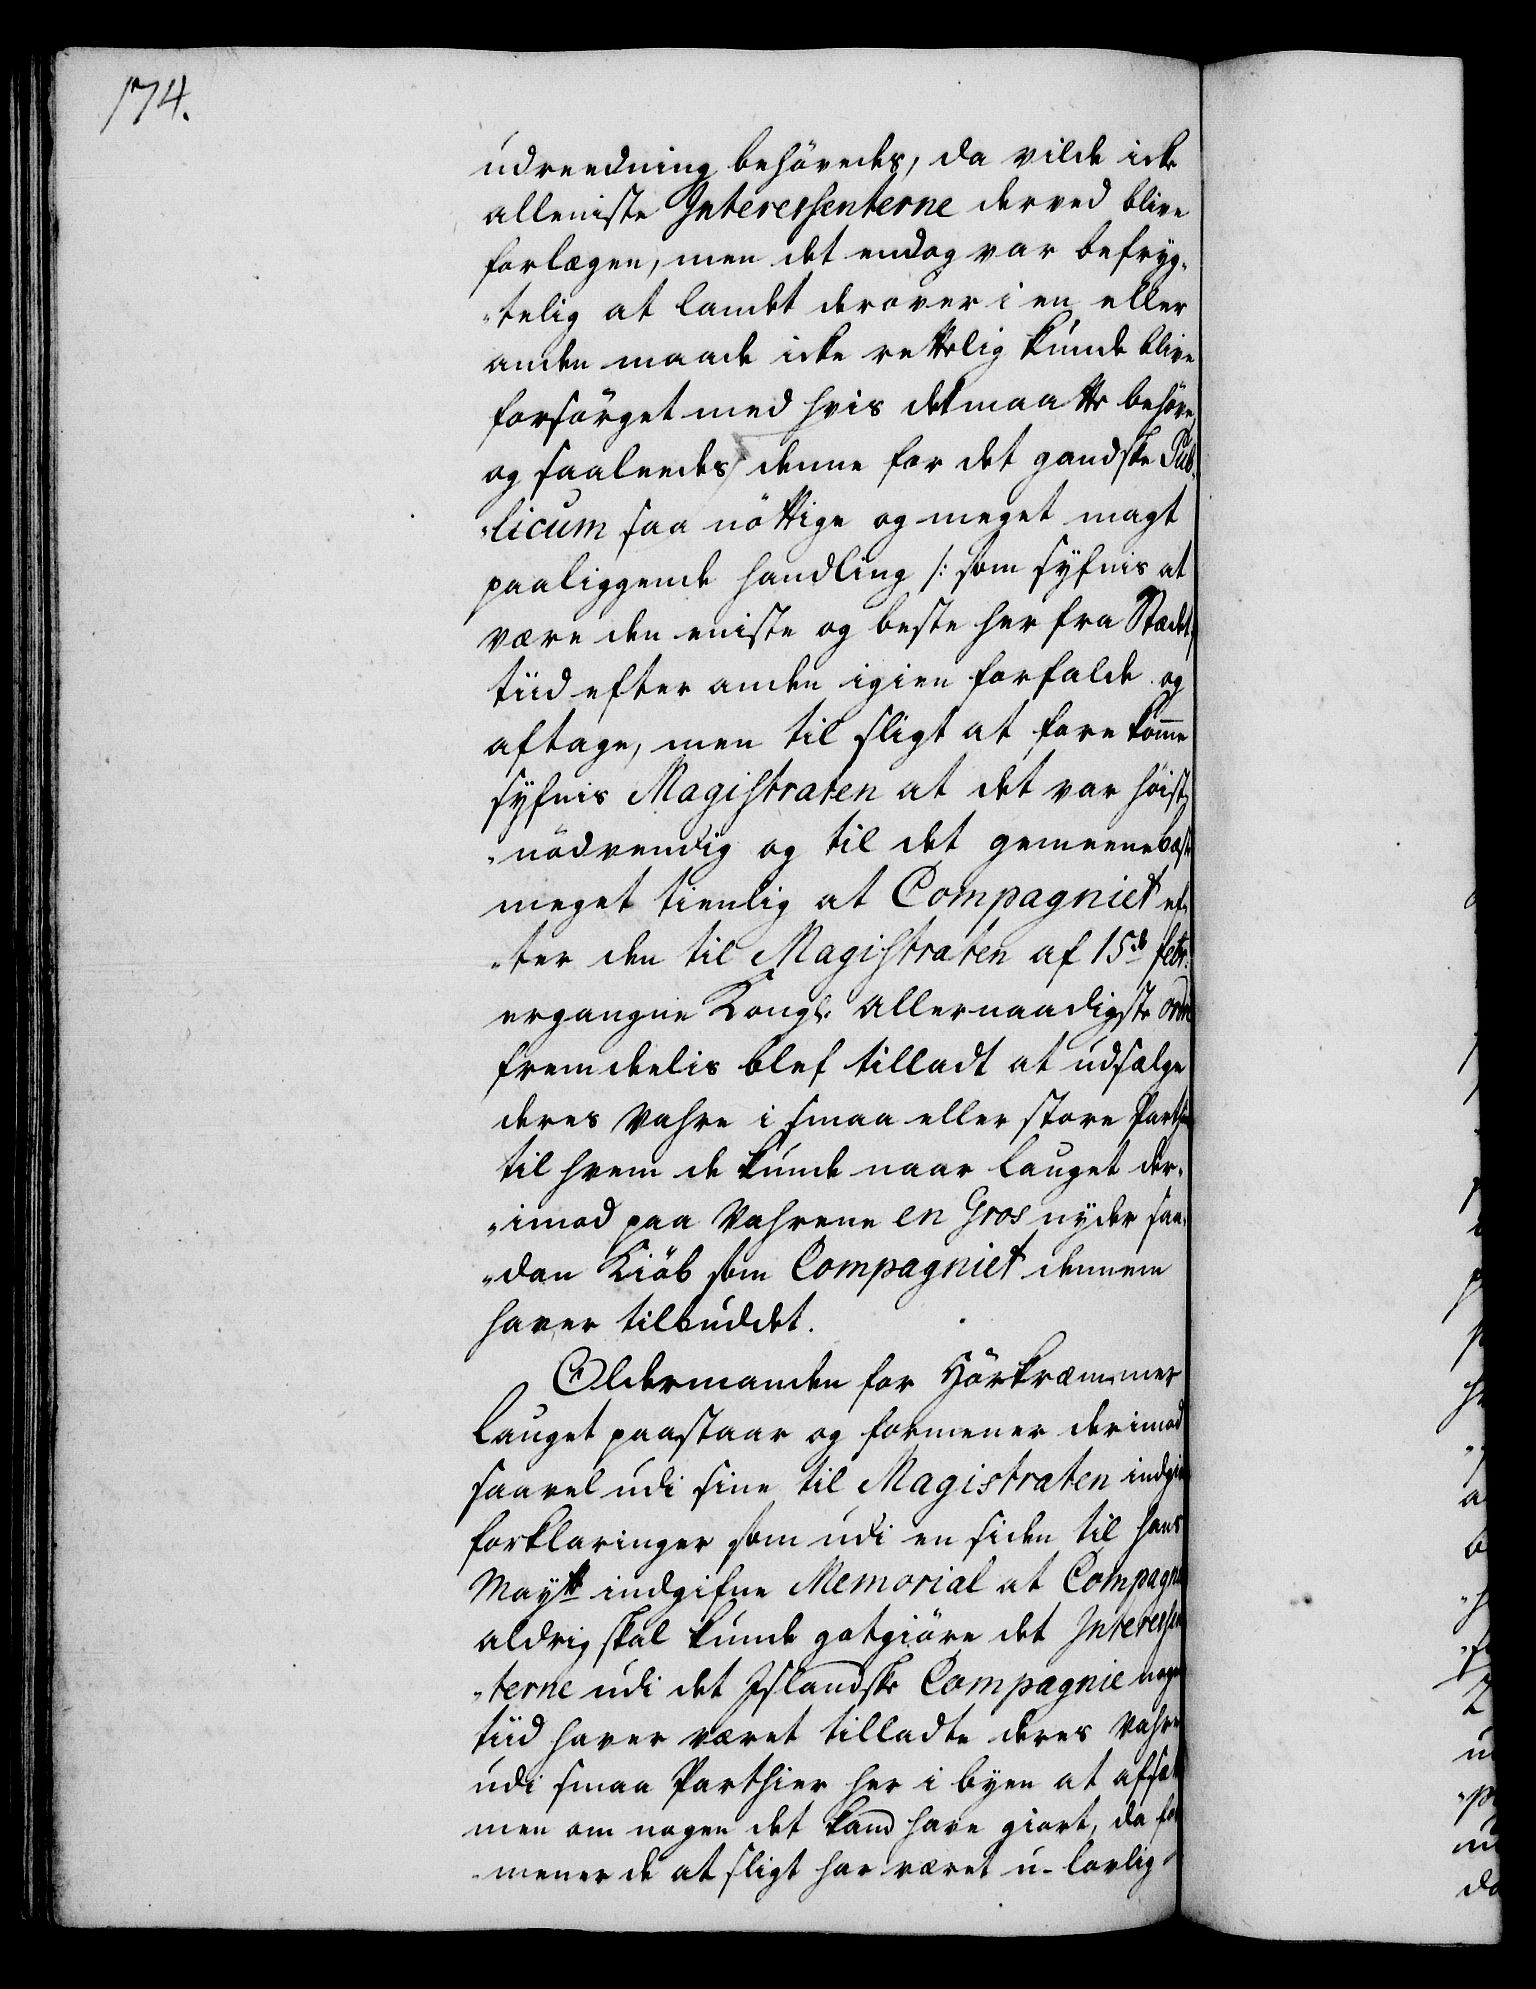 174.
udreedning behövedes, da vilde icke
alleniste Interessenterne derved blive
forlægen, men det endog var befryg-
"telig at landet derover i en eller
anden maade icke rettelig kunde blive
forsörget med hvis det maatte behöve,
og saaleedes denne for det gandske Pub-
"licum saa nöttige og meget magt
paaliggende handling /: som syfnis at
være den eniste og beste her fra Stædet/
tiid efter anden igien forfalde og
aftage, men til sligt at forekom̅e
syfnis Magistraten at det var höist
"nödvendig og til det gemeene bæste
meget tienlig at Compagniet ef-
"ter den til Magistraten af 15de febr.
ergangne Kongl. allernaadigste ordre
fremdeelis blef tilladt at udsælge
deres Vahre i smaa eller store Parthier
til hvem de kunde naar lauget der-
"imod paa Vahrene en Gros nyder saa-
"dan Kiöb som Compagniet dennem
haver tilbuddet.
Oldermanden for Hörkræmmer
Lauget paastaar og formener derimod
saavel udi sine til Magistraten indgivne
forklaringer som udi en siden til hans
Maytt indgifne Memorial at Compagniet
aldrig skal kunde gotgiöre det Interessen-
"terne udi det Islandske Compagnie nogen
tiid haver været tilladte deres Vahre
udi smaa Parthier her i byen at afsætte
men om nogen det kand have giort, da for-
"mener de at sligt har været u-lovlig